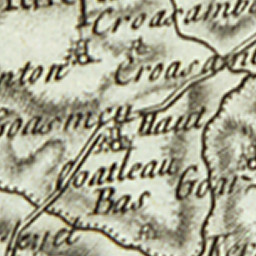 Croasamb
nton
Croasan
Goasmeu
Haut
Coatleau
Bas
Goar
eyel
Ker